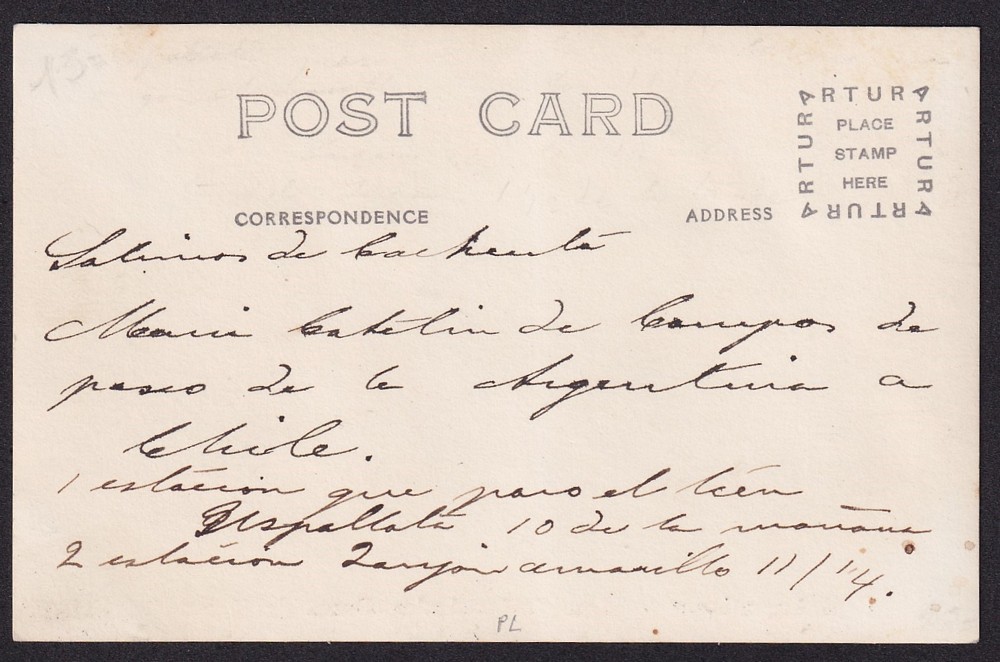 POST CARD
ARTURA
ARTURA
ARTURA
ARTURA
PLACE
STAMP
HERE
CORRESPONDENCE
ADDRESS
Salimos de Cacheutá
Mari Catelin de Campos de
paseo de la Argentina a
Chile.
1 estación que paro el tren
Uspallata 10 de la mañana
2 estación Zanjón amarillo 11/14.
PL